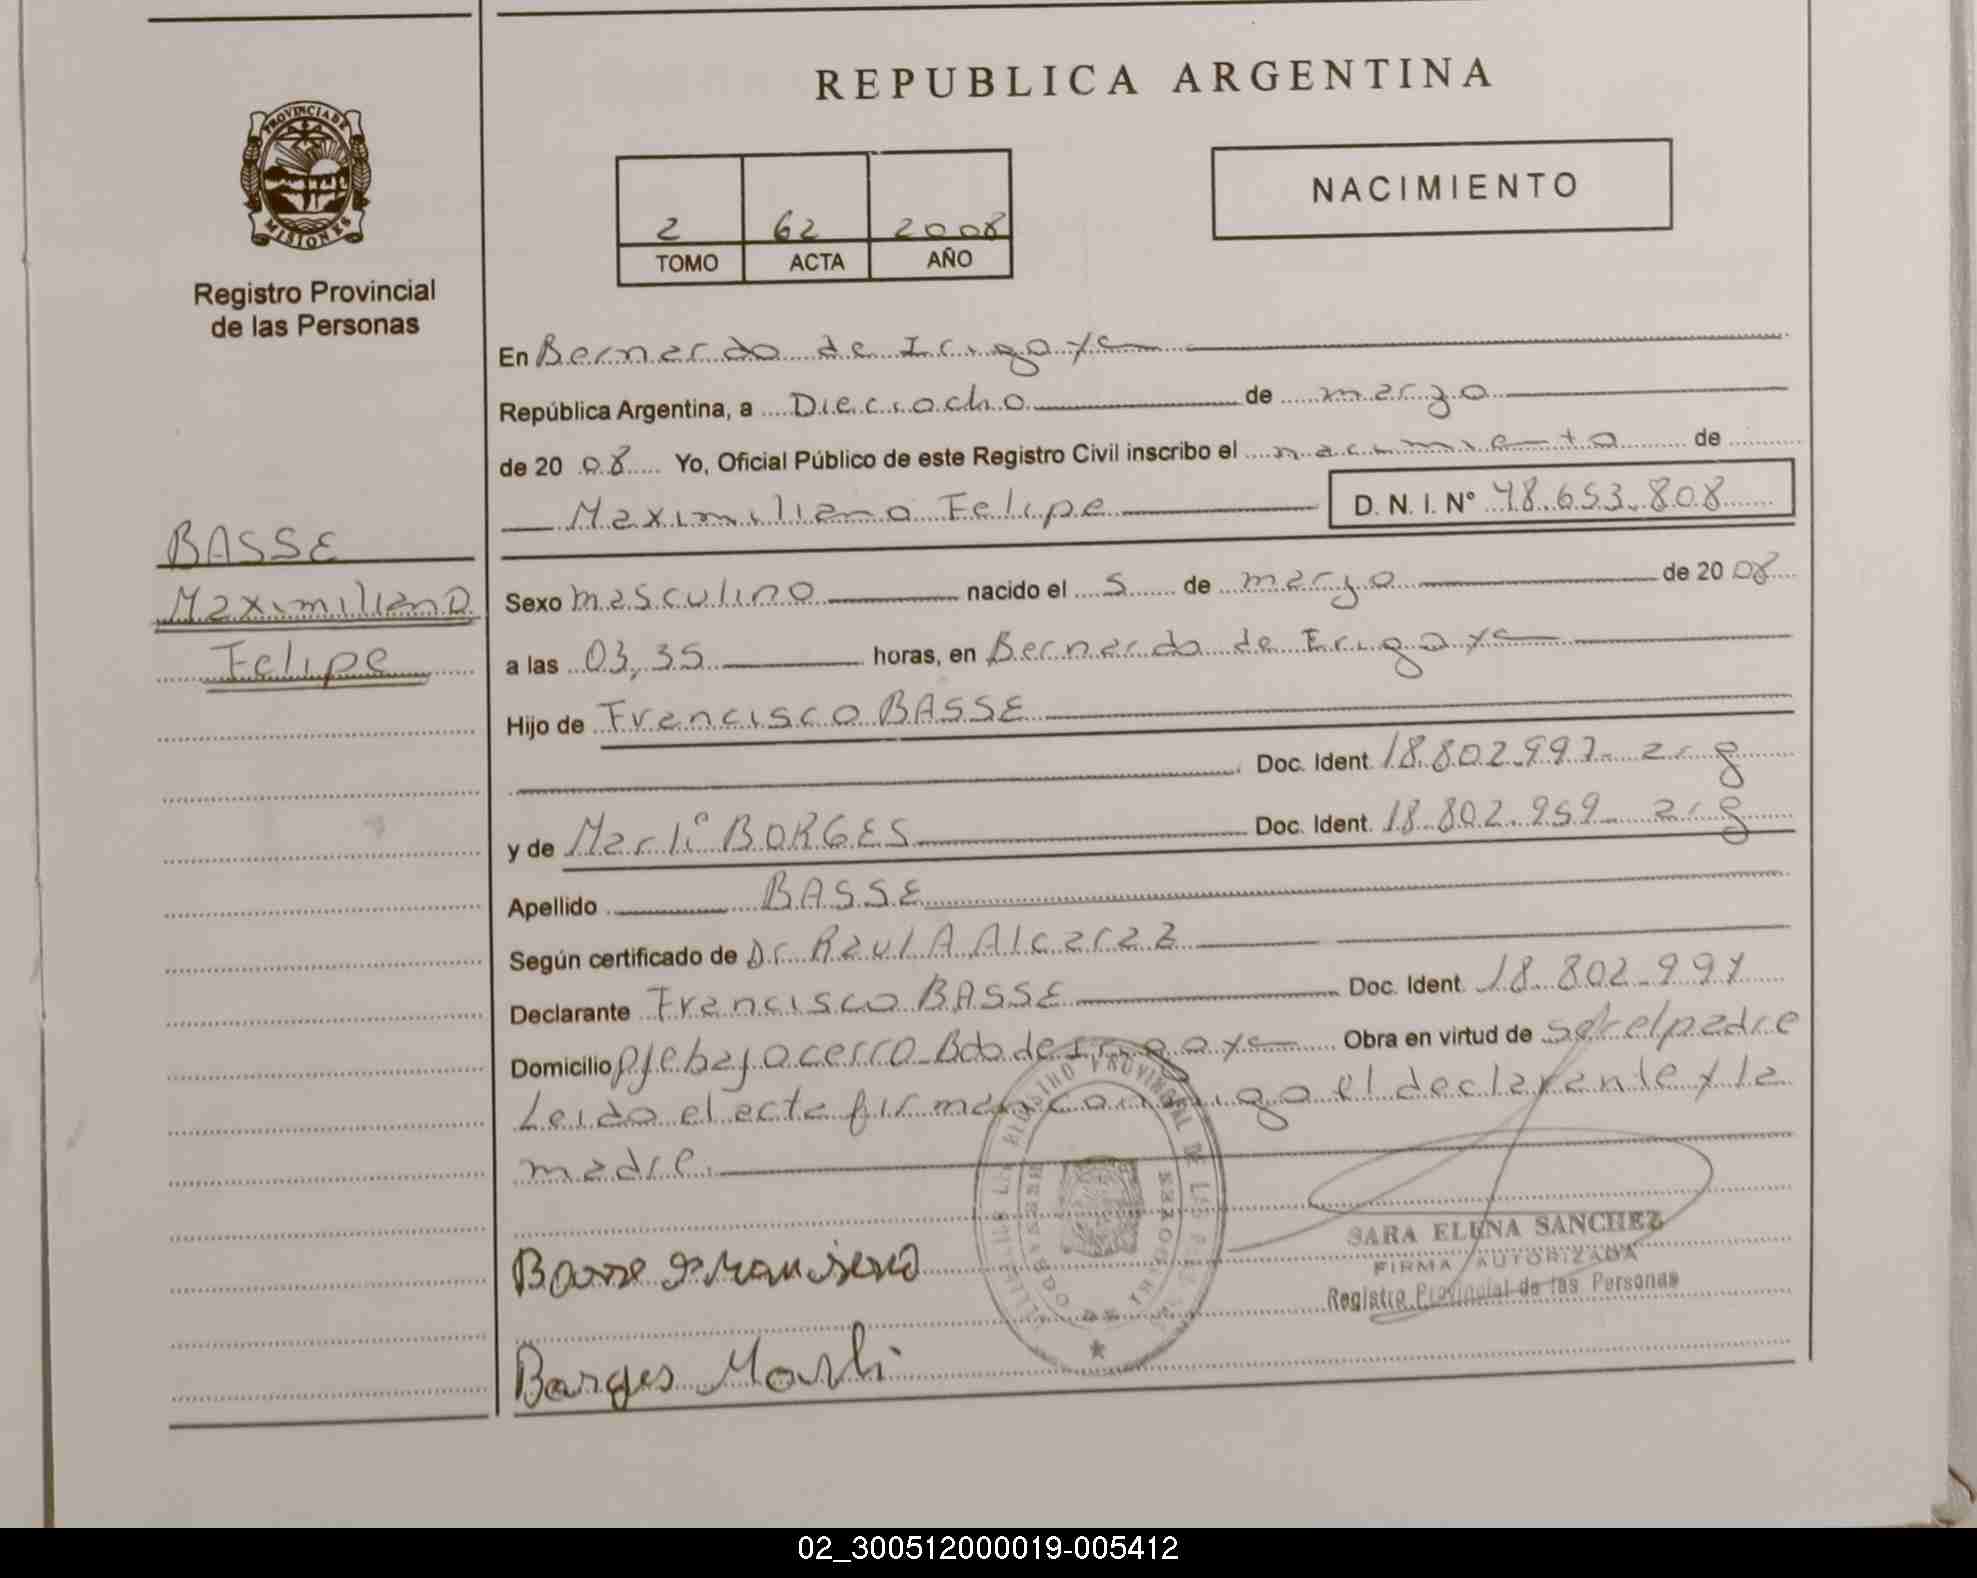 REPUBLICA ARGENTINA
PROVINCIA DE
MISIONES
Registro Provincial
de las Personas
2 62 2008
TOMO ACTA AÑO
NACIMIENTO
BASSE
Maximiliano
Felipe
En Bernardo de Irigoye
República Argentina, a Dieciocho de marzo
de 20 08 Yo, Oficial Público de este Registro Civil inscribo el nacimiento de
Maximiliano Felipe D. N. I. N° 48.653.808
Sexo masculino nacido el 5 de marzo de 20 08
a las 03,35 horas, en Bernardo de Irigoye
Hijo de Francisco BASSE
Doc. Ident. 18.802.997- arg
y de Marli BORGES Doc. Ident. 18.802.959 arg
Apellido BASSE
Según certificado de Dr. Raul A. Alcaraz
Declarante Francisco BASSE Doc. Ident. 18.802.997
Domicilio pje bajo cerro Bdo de Irigoye Obra en virtud de ser el padre
Leido el acta firman conmigo el declarante y la
madre.
Basse Francisco
Borges Marli
REGISTRO PROVINCIAL DE LAS
SARA ELENA SANCHEZ
FIRMA AUTORIZADA
Registro Provincial de las Personas
02_300512000019-005412